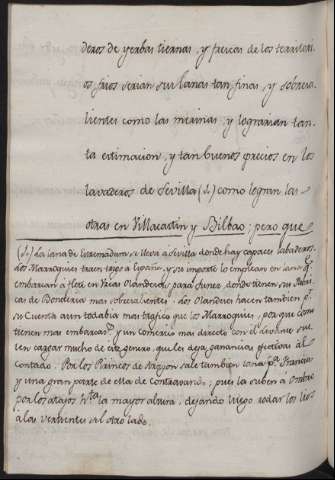 deros de yerbas tiernas, y frescas de los territori
os frios serian sus lanas tan finas, y sobresa
lientes como las merinas, y lograrian tan
ta estimacion, y tan buenos precios en los
lavaderos de Sevilla (1.) como logran las
otras en Villacastin y Bilbao; pero que
(1.) La lana de Estremadura se lleva a Sevilla donde hay capaces labaderos.
Los Marroquies traen a España, y su importe lo emplean en lana q.e
embarcan a flete en para Tunez donde tienen sus
cas de Boneteria mas sobresalientes. Los Olandeses hacen tambien p.r
su Cuenta aun todabia mas trafico que los Marroquies, porque como
tienen mas embarcaz.s y un comercio mas directo con el
ten cargar mucho de este genero, que les deja ganancias efectivas al
contado. Por los Pirineos de Aragon sale tambien lana p.a Francia
y una gran parte de ella de contravando; pues la suben a ombro
por los atajos h.ta la mayor altura, dejando luego rodar los
a las vertientes al otro lado.